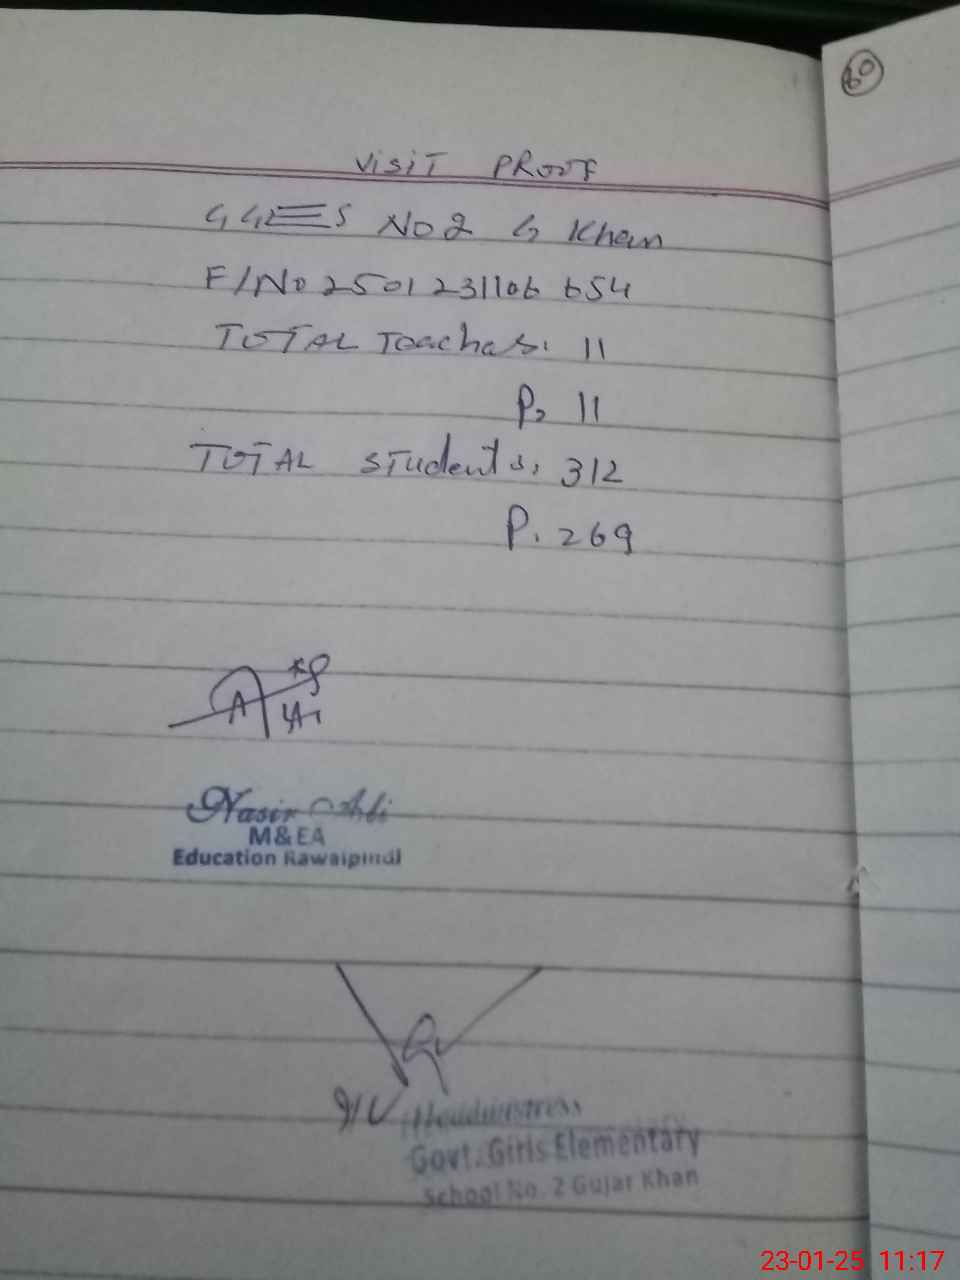 60
VISIT PROOF
GGES No 2 G Khan
F/No 2501231106654
TOTAL Teachers. 11
P. 11
TOTAL Students. 312
P. 269
Nasir Ali
M&EA
Education Rawalpindi
I/C Headmistress
Govt. Girls Elementary
School No. 2 Gujar Khan
23-01-25 11:17